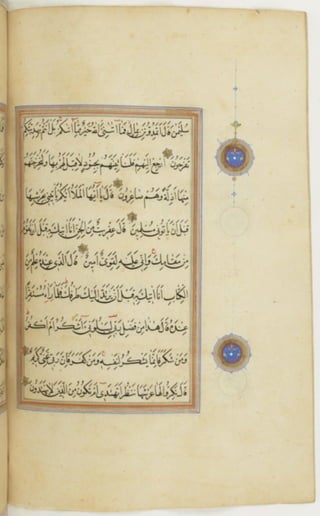 سليمن قال اتمدونن بمال فما اتنى الله خير مما اتكم بل انتم بهديتكم
تفرحون ارجع اليهم فلنأتينهم بجنود لا قبل لهم بها ولنخرجنهم
منها اذلة وهم صاغرون قال يا ايها الملأ ايكم يأتينى بعرشها
قبل ان يأتونى مسلمين قال عفريت من الجن انا اتيك به قبل ان تقوم
من مقامك وانى عليه لقوى امين قال الذى عنده علم من
الكتاب انا اتيك به قبل ان يرتد اليك طرفك فلما راه مستقرا
عنده قال هذا من فضل ربى ليبلونى ءاشكر ام اكفر
ومن شكر فانما يشكر لنفسه ومن كفر فان ربى غنى كريم
قال نكروا لها عرشها ننظر اتهتدى ام تكون من الذين لا يهتدون